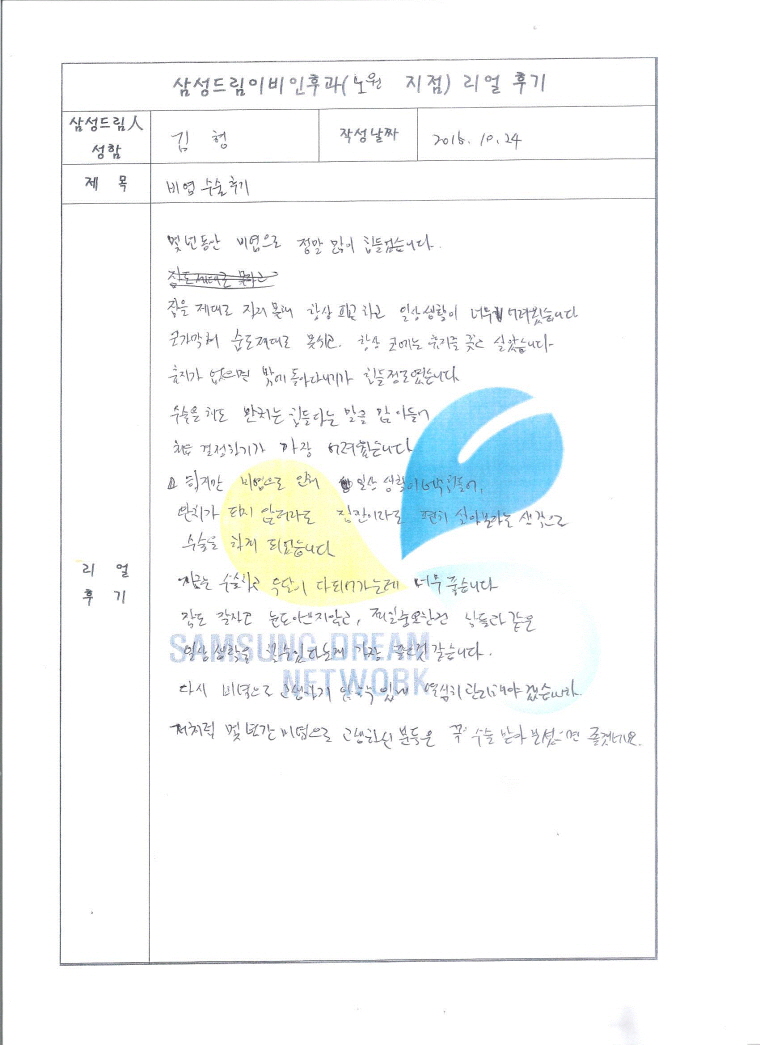 삼성드림이비인후과(노원 지점) 리얼 후기
삼성드림人 성함
김 형
작성날짜
2016. 10. 24
제 목
비염 수술 후기
리 얼 후 기
몇년동안 비염으로 정말 많이 힘들었습니다.
잠도 제대로 못자고
잠을 제대로 자지 못해 항상 피곤하고 일상생활이 너무 어려웠습니다
코가막혀 숨도제대로 못쉬고. 항상 코에는 휴지를 꽂고 살았습니다.
휴지가 없으면 밖에 돌아다니기가 힘들정도였습니다
수술을 해도 완치는 힘들다는 말을 많이들어
결정하기가 가장 어려웠습니다
하지만 비염으로 인해 일상 생활이 너무 힘들어,
완치가 되지 않더라도 편히 살아보자는 생각으로
수술을 하게 되었습니다
지금은 수술하고 두달이 다되어가는데 너무 좋습니다
잠도 잘자고 눈도 , 제일중요한건 남들과 같은
일상생활을 할수있다는게 가장 좋은것 같습니다.
SAMSUNG DREAM
NETWORK
다시 비염으로 고생하지 않게 열심히 관리해야 겠습니다
저처럼 몇 년간 비염으로 고생하신 분들은 꼭 수술 받아 보셨으면 좋겠네요.